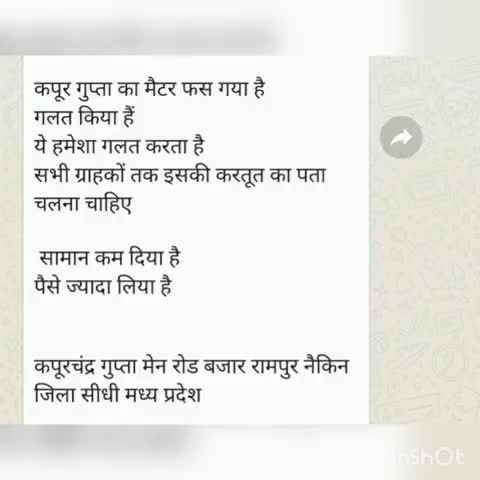 कपूर गुप्ता का मैटर फस गया है
गलत किया हैं
ये हमेशा गलत करता है
सभी ग्राहकों तक इसकी करतूत का पता
चलना चाहिए
सामान कम दिया है
पैसे ज्यादा लिया है
कपूरचंद्र गुप्ता मेन रोड बजार रामपुर नैकिन
जिला सीधी मध्य प्रदेश